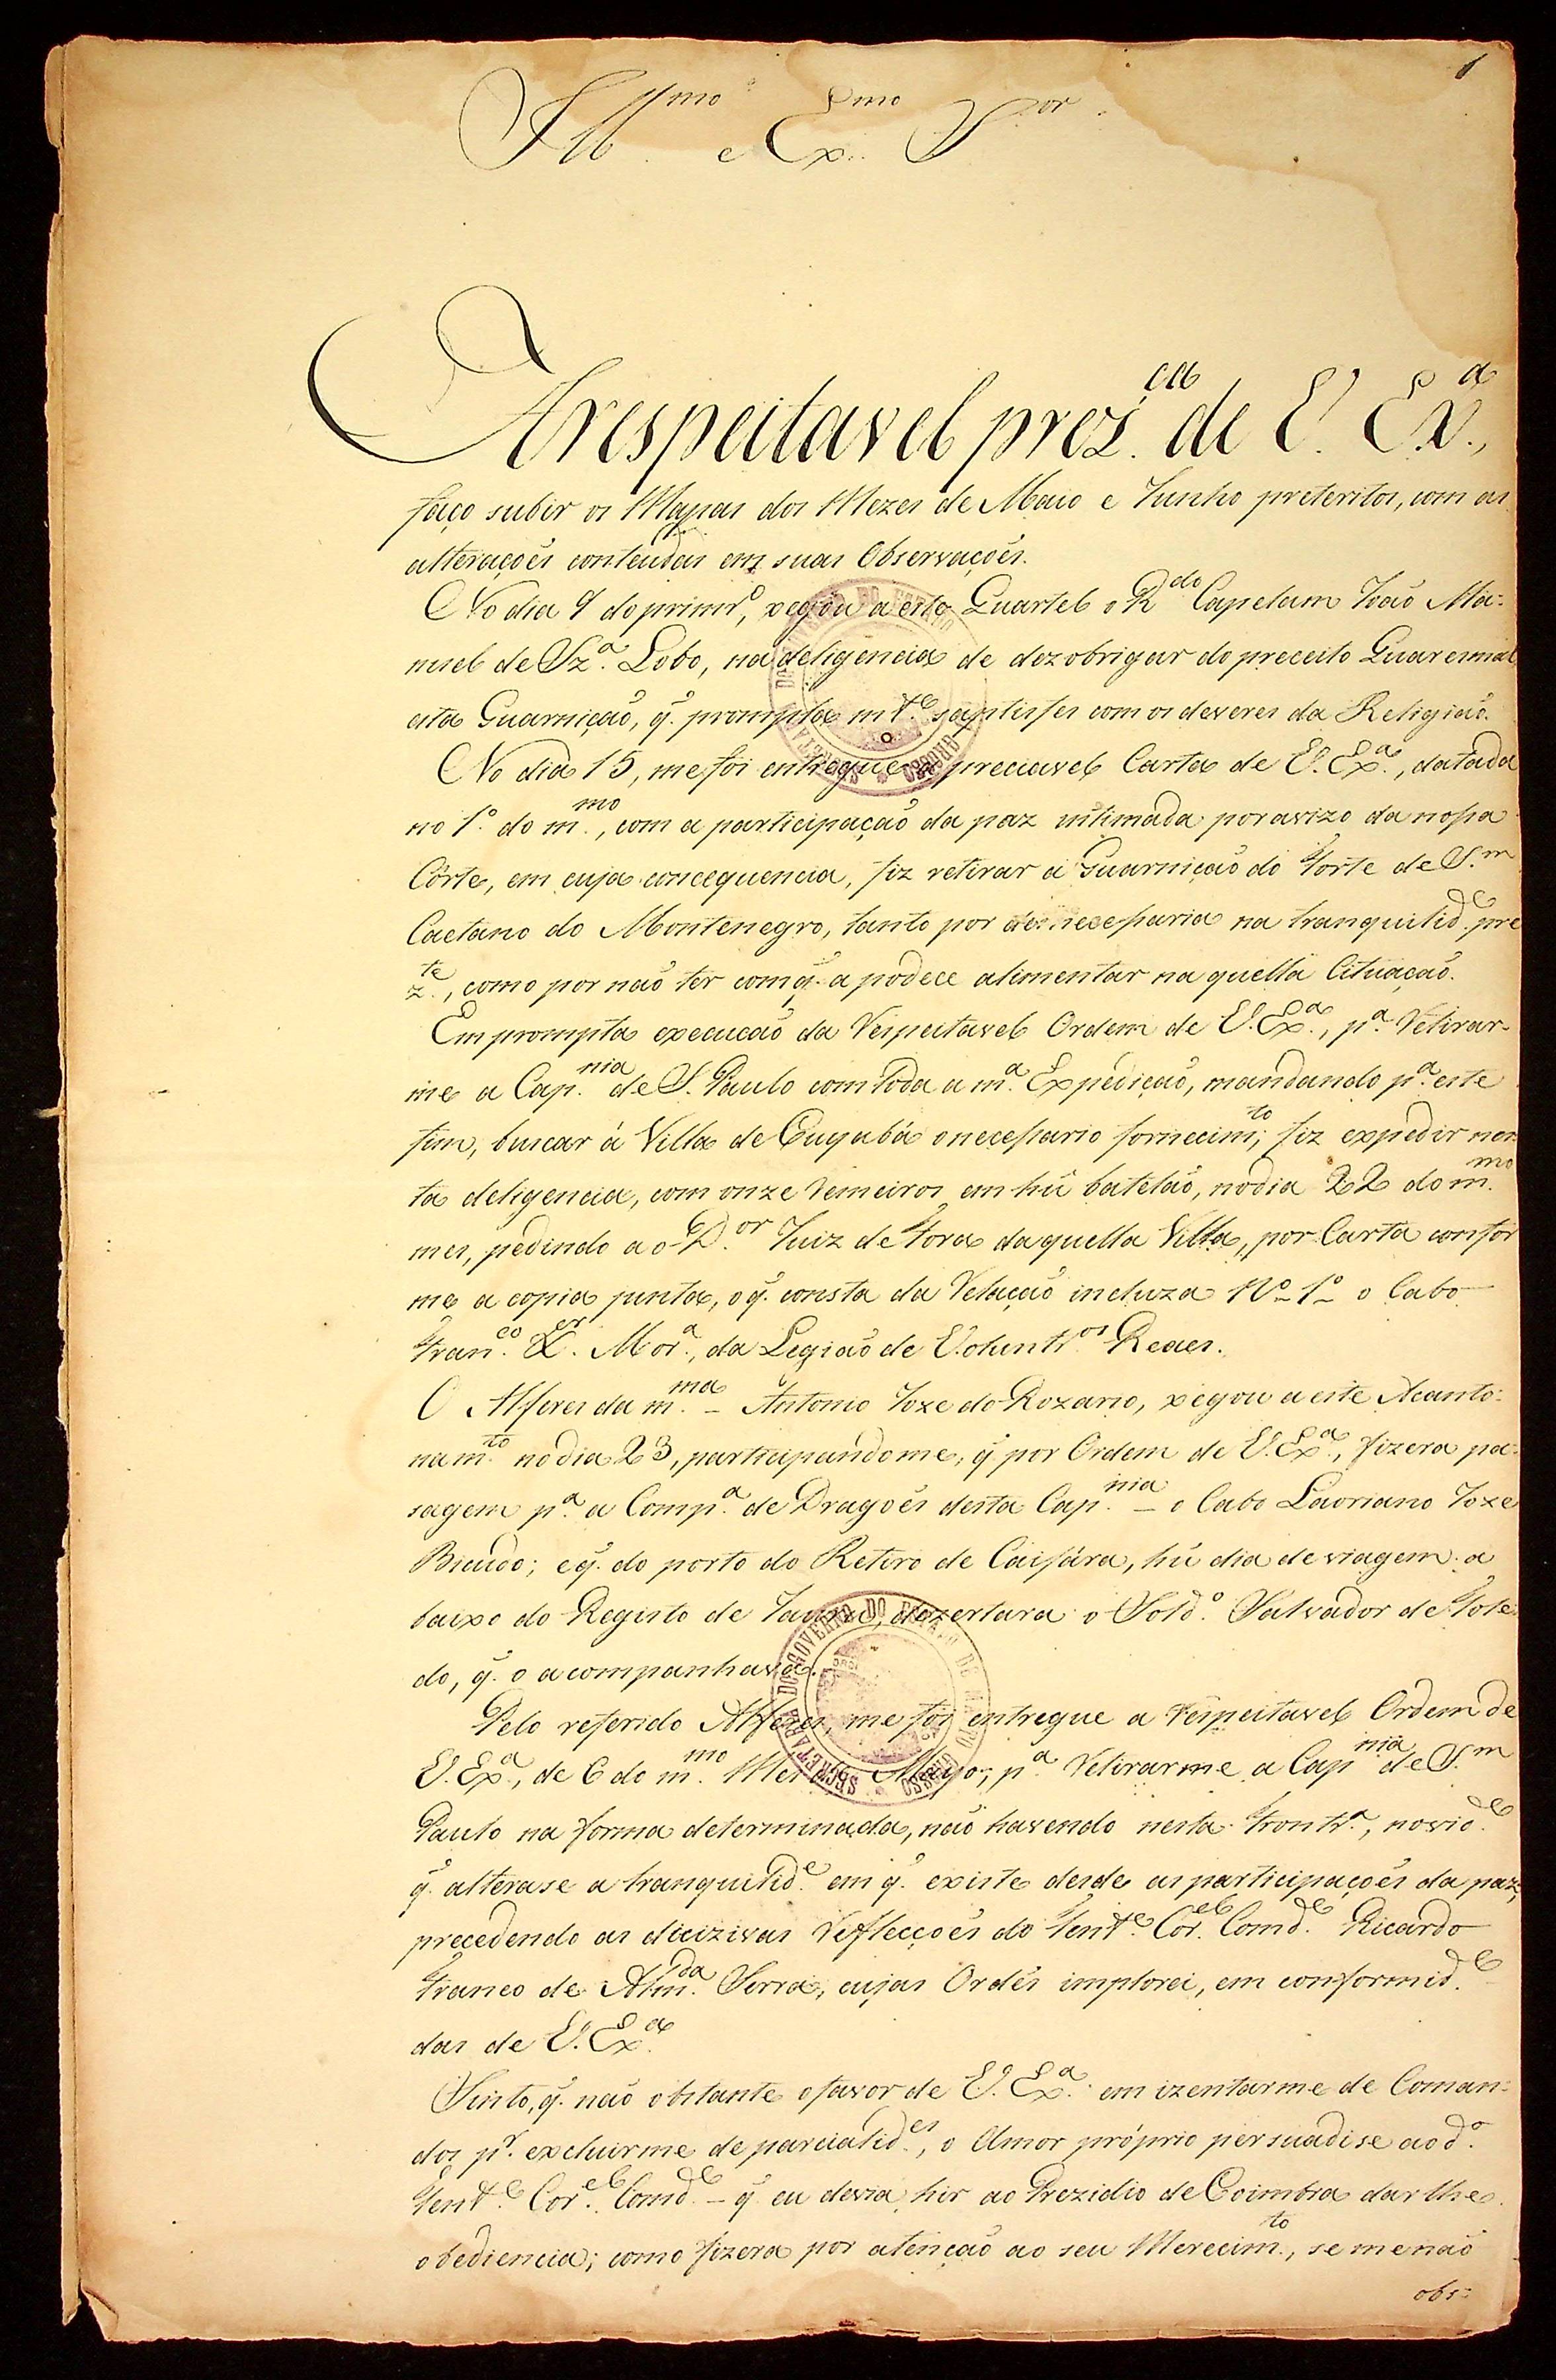 1
Ill.mo e Ex.mo S.or
A respeitavel prez.ca de V. Ex.a,
faço subir os Mapas dos Mezes de Maio e Junho preteritos, com as
alteraçoẽs conteudas em suas Observaçoẽs.
No dia 9 do primr.o, xegou a este Quartel o R.do Capelam João Ma=
noel de Sz.a Lobo, na deligencia de dezobrigar do preceito Quaresmal
esta Guarnição, q. prompta m.te satisfes com os deveres da Religião.
No dia 15, me foi entregue a preciavel Carta de V. Ex.a, datada
no 1.o do m.mo, com a participação da paz intimada por avizo da nossa
Côrte, em cuja concequencia, fiz retirar a Guarnição do Forte de S.m
Caetano do Montenegro, tanto por desnecessaria na tranquilid.e pre
z.te, como por não ter com q. a podece alimentar na quella Cituação.
Em prompta execucão da Respeitavel Ordem de V. Ex.a, p.a Retirar-
me a Cap.nia de S. Paulo com toda a m.a Expedição, mandando p.a este
fim, buscar á Villa de Cuyabá o necessario fornecim.to; fiz expedir nes
ta deligencia, com onze remeiros em hũ batelão, no dia 22 do m.mo
mes, pedindo ao D.or Juiz de Fora daquella Villa, por Carta confor
me a copia junta, o q. consta da Relação incluza N.o 1.o o Cabo
Fran.co X.er Mor.a, da Legião de Volunt.os Reaes.
O Alferes da m.ma - Antonio Joze do Rozario, xegou a este Acanto=
nam.to no dia 23, participandome, q. por Ordem de V. Ex.a, fizera pa=
sagem p.a a Comp.a de Dragoẽs desta Cap.nia - o Cabo Lauriano Joze
Bicudo; e q. do porto do Retiro de Caissára, hũ dia de viagem a
baixo do Registo de Jaurú, dezertara o Sold.o Salvador de Tole
do, q. o acompanhava.
Pelo referido Alferes, me foi entregue a respeitavel Ordem de
V. Ex.a, de 6 do m.mo Mes de Mayo, p.a Retirarme a Cap.nia de S.m
Paulo na forma determinada, não havendo nesta Front.a, novid.e
q. alterase a tranquilid.e em q. existe desde as participaçoẽs da paz,
precedendo as dicizivas Reflecçoẽs do Ten.te Cor.el Com.de Ricardo
Franco de Alm.da Serra, cujas Ordẽs implorei, em conformid.e
das de V. Ex.a
Sinto, q. não obstante o favor de V. Ex.a em izentarme de Coman=
dos p.r excluirme de parcialid.es, o Amor próprio persuadise ao d.o
Ten.te Cor.el Com.de - q. eu devia hir ao Prezidio de Coimbra dar lhe
obediencia; como fizera por atenção ao seu Merecim.to, se me não
obs=
SECRETARIA DO GOVERNO DO ESTADO DE MATTO GROSSO